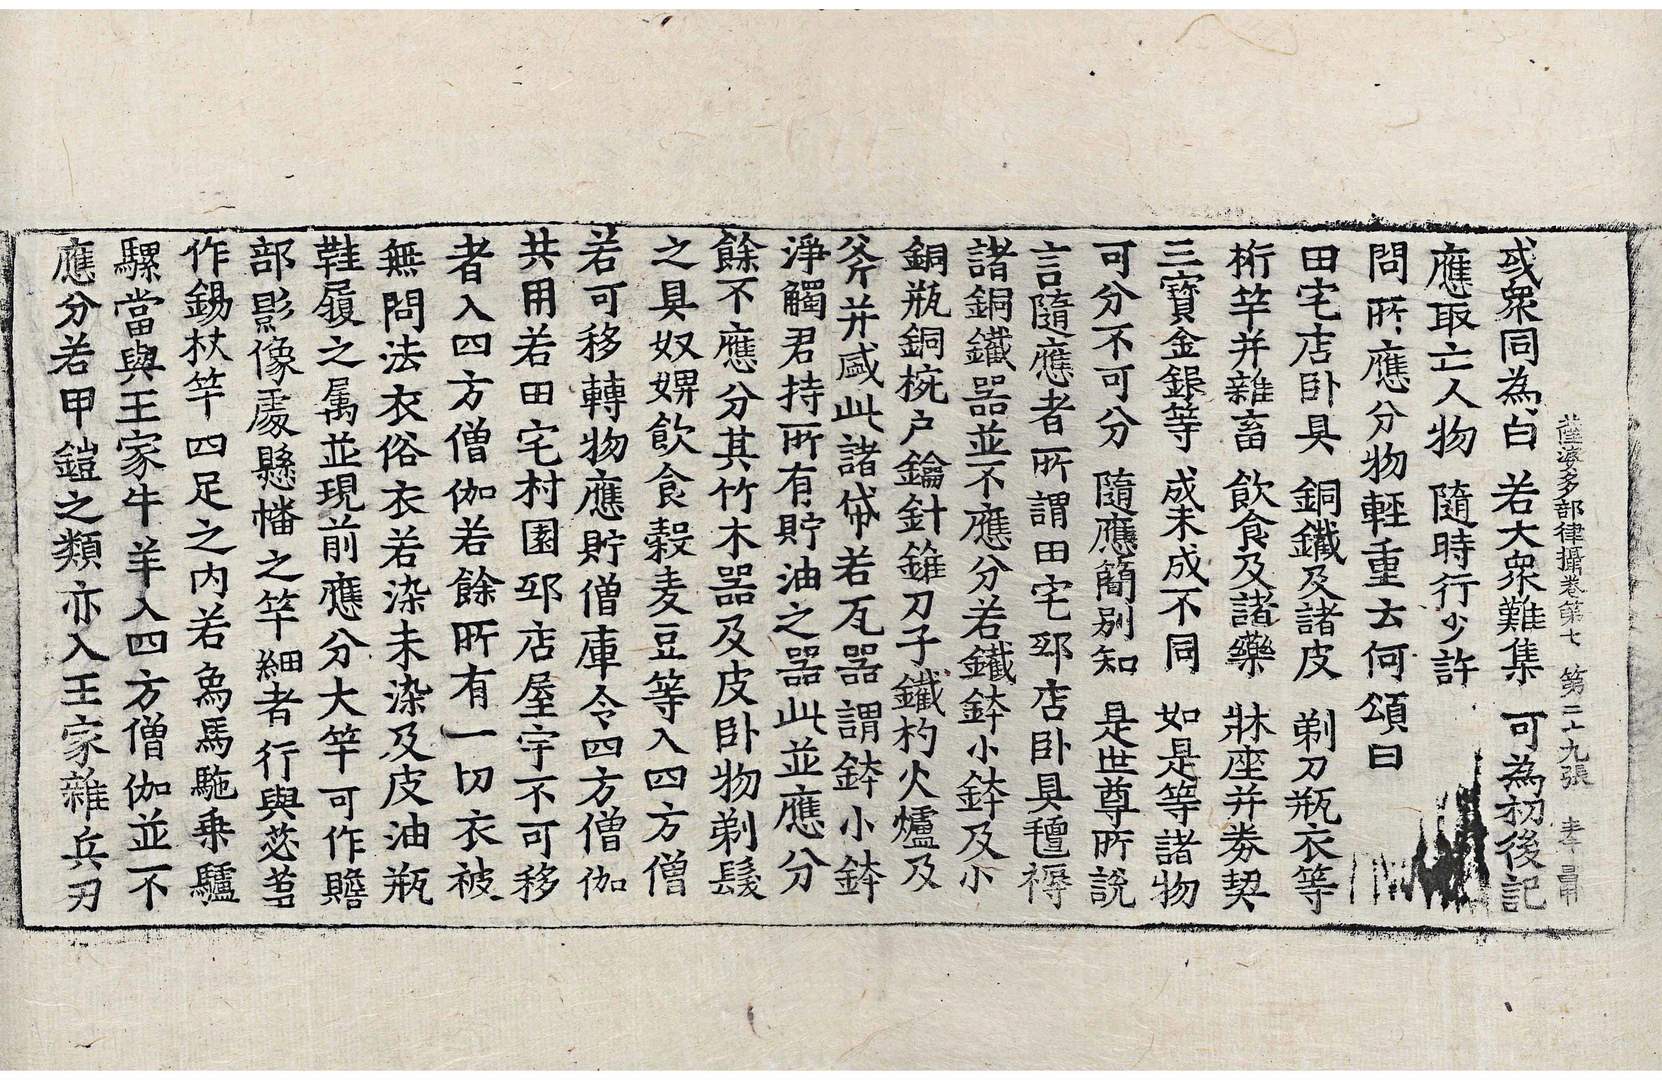 薩婆多部律攝卷第七 第二十九張
或衆同為白 若大衆難集 可為初後記
應取亡人物 隨時行少許
問所應分物輕重云何頌曰
田宅店卧具 銅鐵及諸皮 剃刀瓶衣等
桁竿并雜畜 飲食及諸藥 牀座并券契
三寶金銀等 成未成不同 如是等諸物
可分不可分 隨應簡别知 是世尊所說
言隨應者所謂田宅邸店卧具氊褥
諸銅鐵器並不應分若鐵鉢小鉢及小
銅瓶銅椀户鑰針錐刀子鐵杓火爐及
斧并盛此諸帒若瓦器謂鉢小鉢
淨觸君持所有貯油之器此並應分
餘不應分其竹木器及皮卧物剃髮
之具奴婢飲食穀麦豆等入四方僧
若可移轉物應貯僧庫令四方僧伽
共用若田宅村園邸店屋宇不可移
者入四方僧伽若餘所有一切衣被
無問法衣俗衣若染未染及皮油瓶
鞋履之属並現前應分大竿可作贍
部影像處懸幡之竿細者行與苾芻
作錫杖竿四足之内若象馬駞乗驢
騾當與王家牛羊入四方僧伽並不
應分若甲鎧之類亦入王家雜兵刃